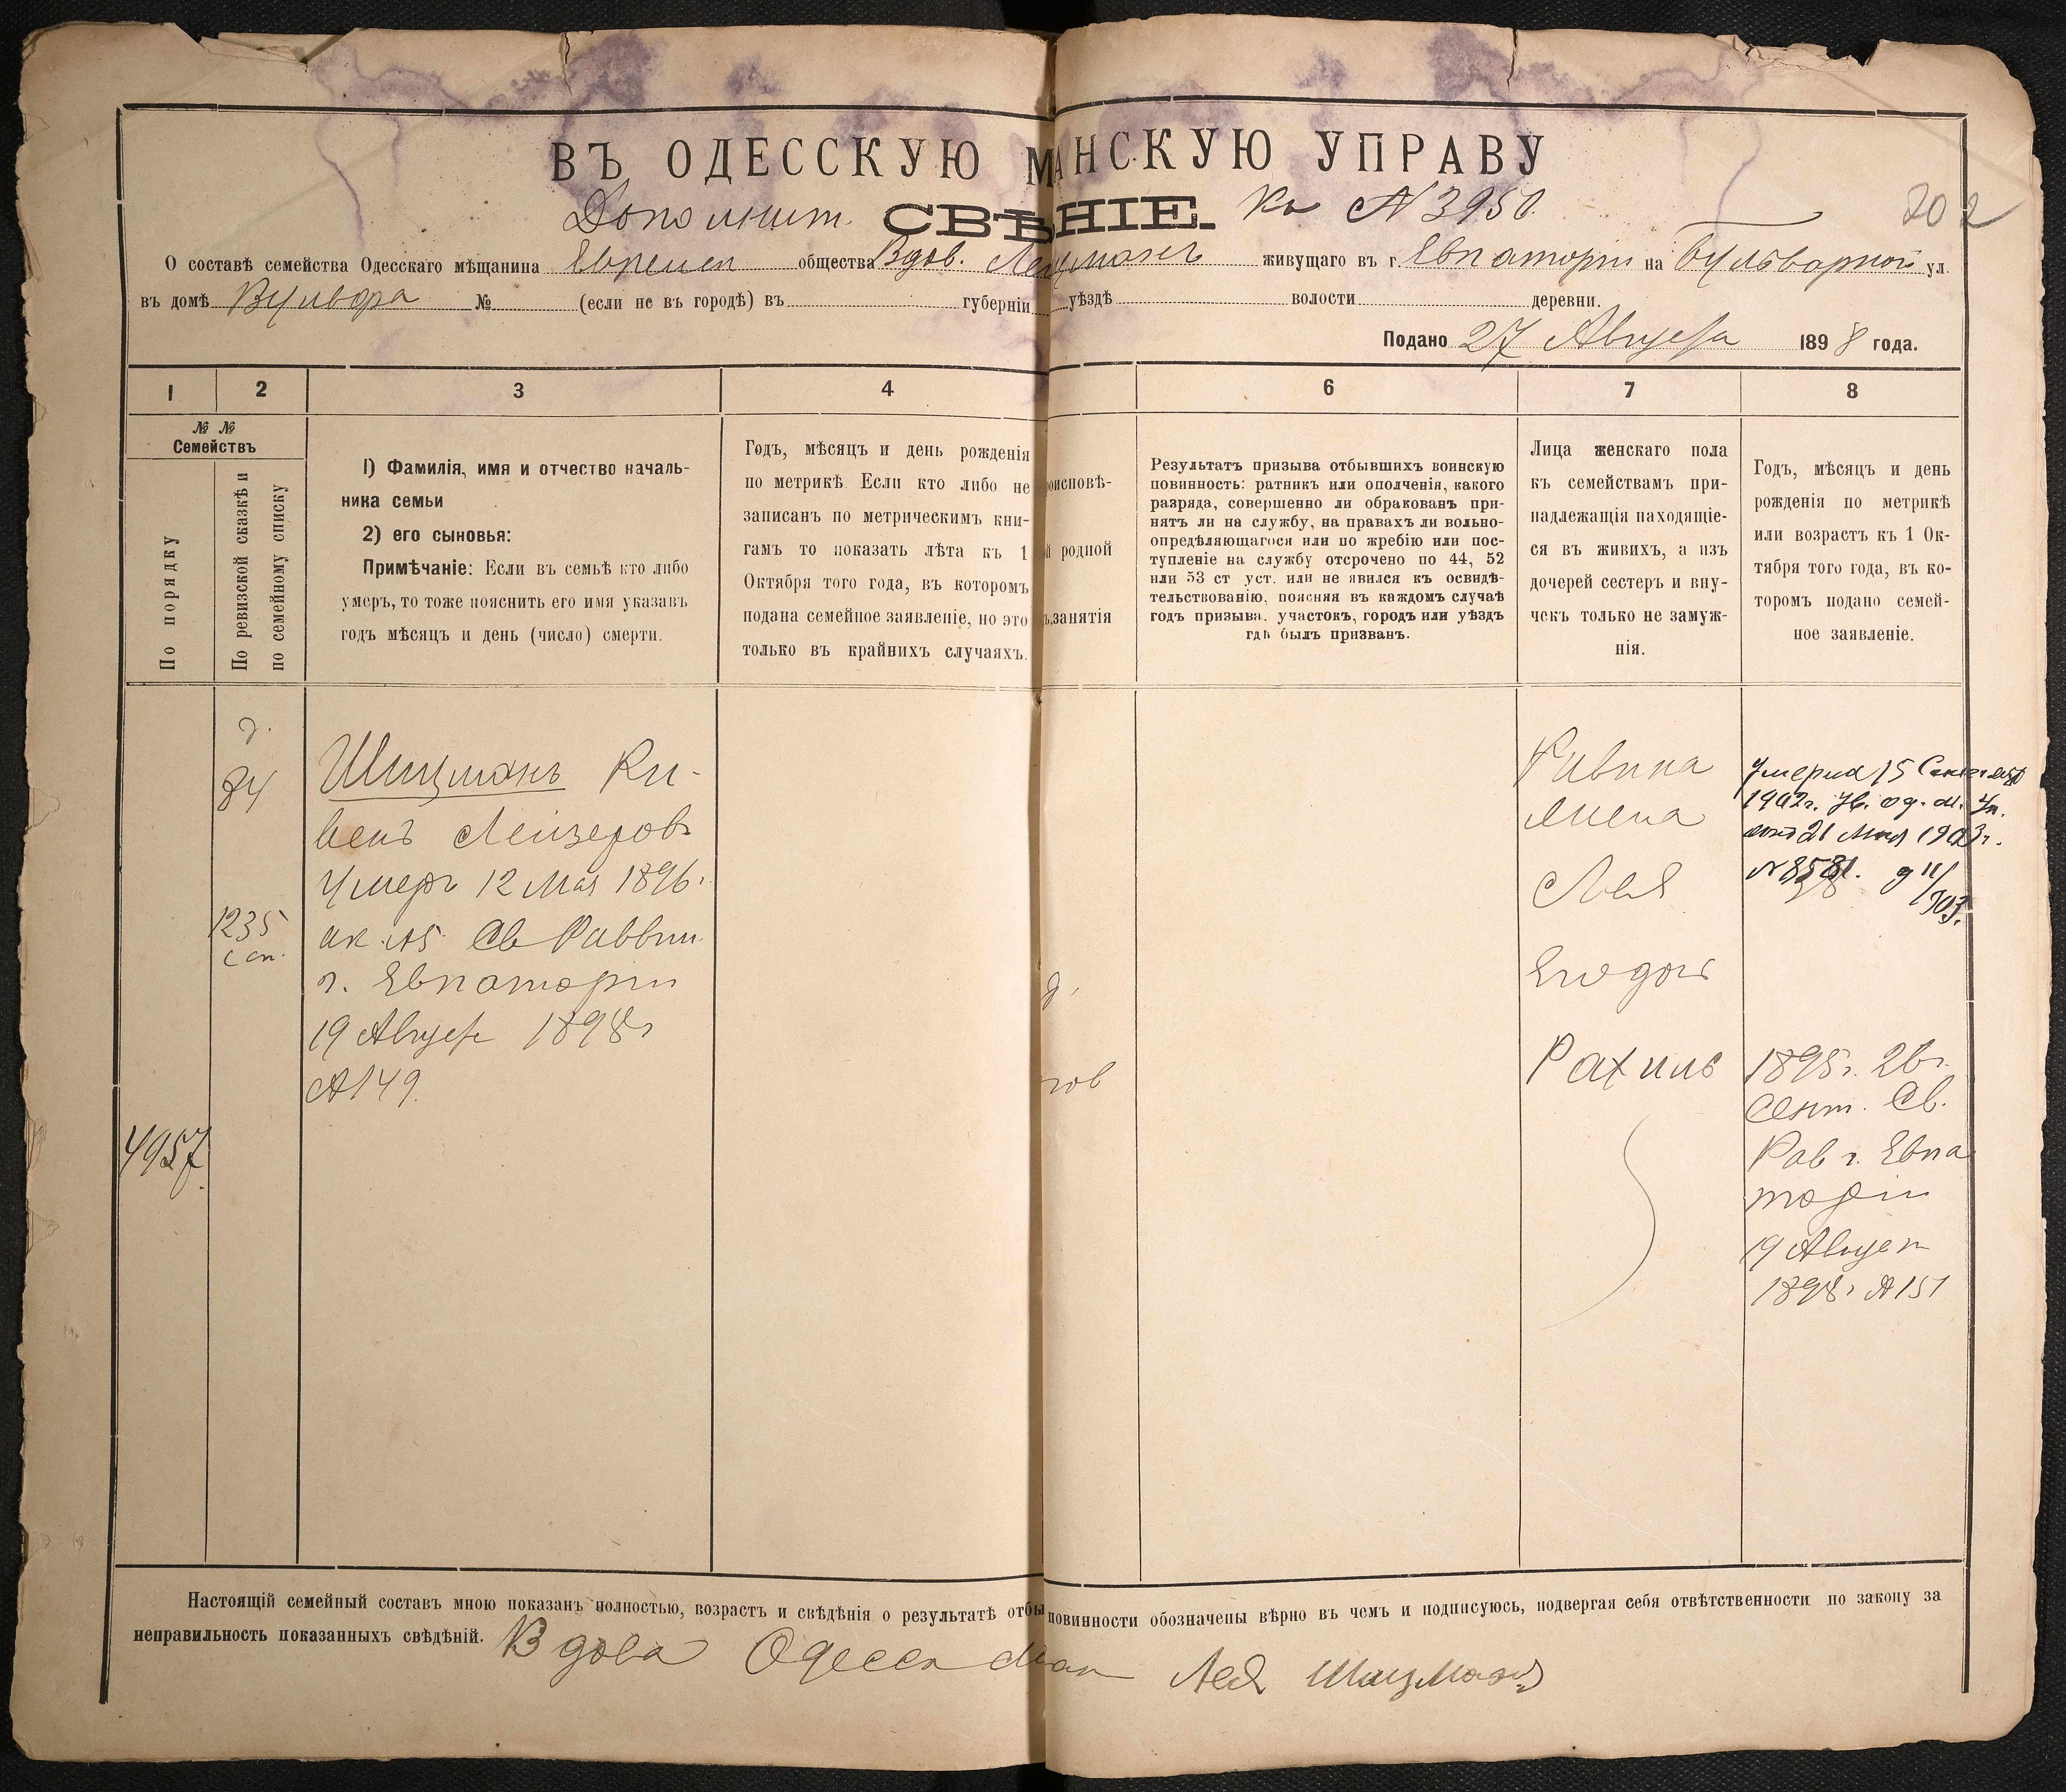 ВЪ ОДЕССКУЮ М АНСКУЮ УПРАВУ
Дополнит. СВѢ НІЕ. Къ № 3950.
202
О составѣ семейства Одесскаго мѣщанина Евреиск общества Вдов. живущаго въ г. Евпаторіи на Бульварной ул.
въ домѣ Вульфа № (если не въ городѣ) въ губерніи уѣздѣ волости деревни.
Подано 27 Августа 1898 года.
1 2 3 4 6 7 8
№ №
Семействъ
По порядку
По ревизской сказкѣ и
по семейному списку
1) Фамилія, имя и отчество началь-
ника семьи
2) его сыновья:
Примѣчаніе: Если въ семьѣ кто либо
умеръ, то тоже пояснить его имя указавъ
годъ мѣсяцъ и день (число) смерти.
Годъ, мѣсяцъ и день рожденія
по метрикѣ Если кто либо не
записанъ по метрическимъ кни-
гамъ то показать лѣта къ 1
Октября того года, въ которомъ
подана семейное заявленіе, но это
только въ крайнихъ случаяхъ.
роисповѣ-
й родной
ъ занятія
Результатъ призыва отбывшихъ воинскую
повинность: ратникъ или ополченія, какого
разряда, совершенно ли обракованъ при-
нятъ ли на службу, на правахъ ли вольно-
опредѣляющагося или по жребію или пос-
тупленіе на службу отсрочено по 44, 52
или 53 ст уст. или не явился къ освидѣ-
тельствованію, поясняя въ каждомъ случаѣ
годъ призыва, участокъ, городъ или уѣздъ
гдѣ былъ призванъ.
Лица женскаго пола
къ семействамъ при-
надлежащія находящіе-
ся въ живихъ, а изъ
дочерей сестеръ и вну-
чекъ только не замуж-
нія.
Годъ, мѣсяцъ и день
рожденія по метрикѣ
или возрастъ къ 1 Ок-
тября того года, въ ко-
торомъ подано семей-
ное заявленіе.
д.
84
1235
сп.
4957
Шицманъ Ри-
венъ Лейзеровъ
Умеръ 12 Мая 1896г.
ак. №5 Св Раввин.
г. Евпаторіи
19 Август 1898г
№149.
д.
гов
Ривина
жена
Лея
Рахиль
Умерла 15 Сентября
1902г. Ув. од. м. Уп.
21 Мая 1903г.
№ 8581.
1895г. 26г.
Сент. Св.
Рав г. Евпа
торіи
19 Август
1898г №151
Настоящій семейный составъ мною показанъ полностью, возрастъ и свѣдѣнія о результатѣ отбы повинности обозначены вѣрно въ чемъ и подписуюсь, подвергая себя отвѣтственности по закону за
неправильность показанныхъ свѣдѣній. Вдова Одесск Лея Шицманъ